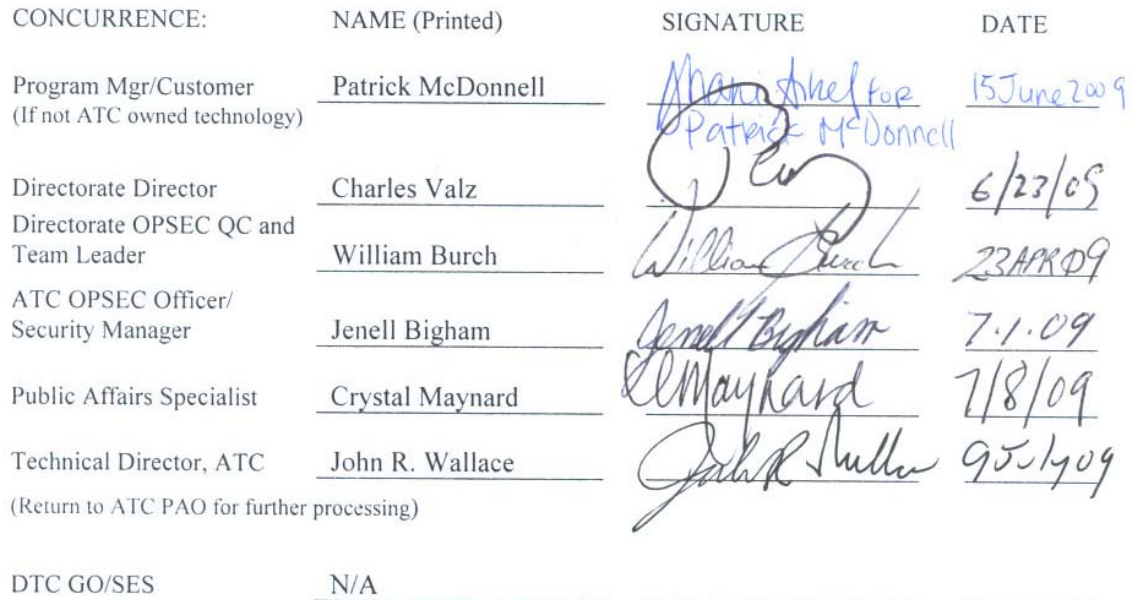 CONCURRENCE: NAME (Printed) SIGNATURE DATE
Program Mgr/Customer Patrick McDonnell for 15 June 2009
(If not ATC owned technology) Patrick McDonnell
Directorate Director Charles Valz 6/23/09
Directorate OPSEC QC and
Team Leader William Burch William Burch 23APR09
ATC OPSEC Officer/
Security Manager Jenell Bigham Jenell Bigham 7.1.09
Public Affairs Specialist Crystal Maynard CMaynard 7/8/09
Technical Director, ATC John R. Wallace John R 9July09
(Return to ATC PAO for further processing)
DTC GO/SES N/A